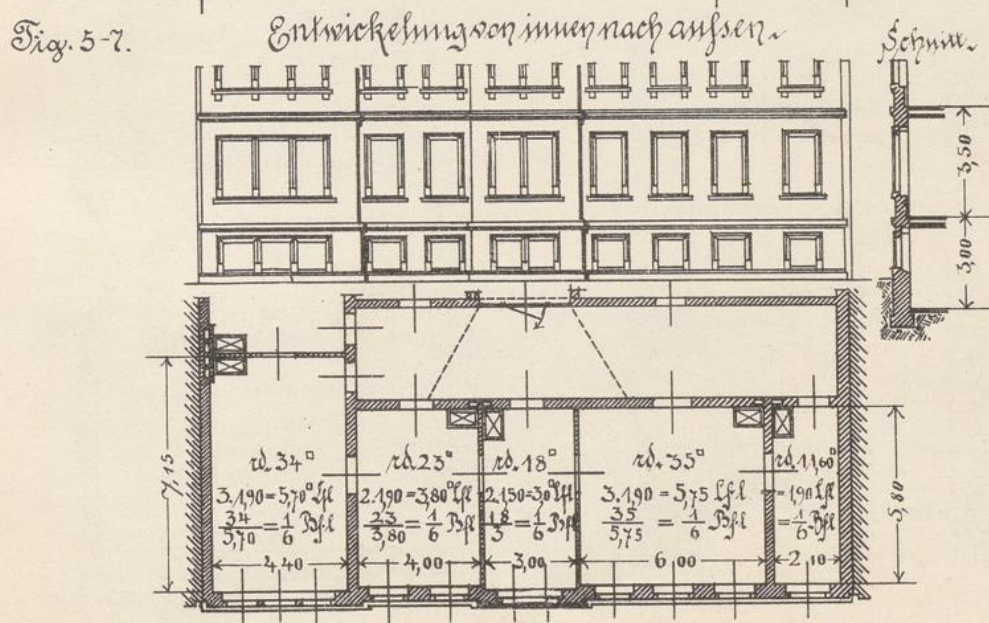 Fig. 5-7.
Entwickelung von innen nach außen.
Schnitt.
3,50
3,00
7,15
rd. 34□
3.1,90=5,70□ Lfl
34/5,70=1/6 Bfl
4,40
rd. 23□
2.1,90=3,80□ Lfl
23/3,80=1/6 Bfl
4,00
rd. 18□
2.1,50=3,0□ Lfl
18/3=1/6 Bfl
3,00
rd. 35□
3.1,90=5,75 Lfl
35/5,75=1/6 Bfl
6,00
rd. 11,60□
=1,90 Lfl
=1/6 Bfl
2,10
5,80